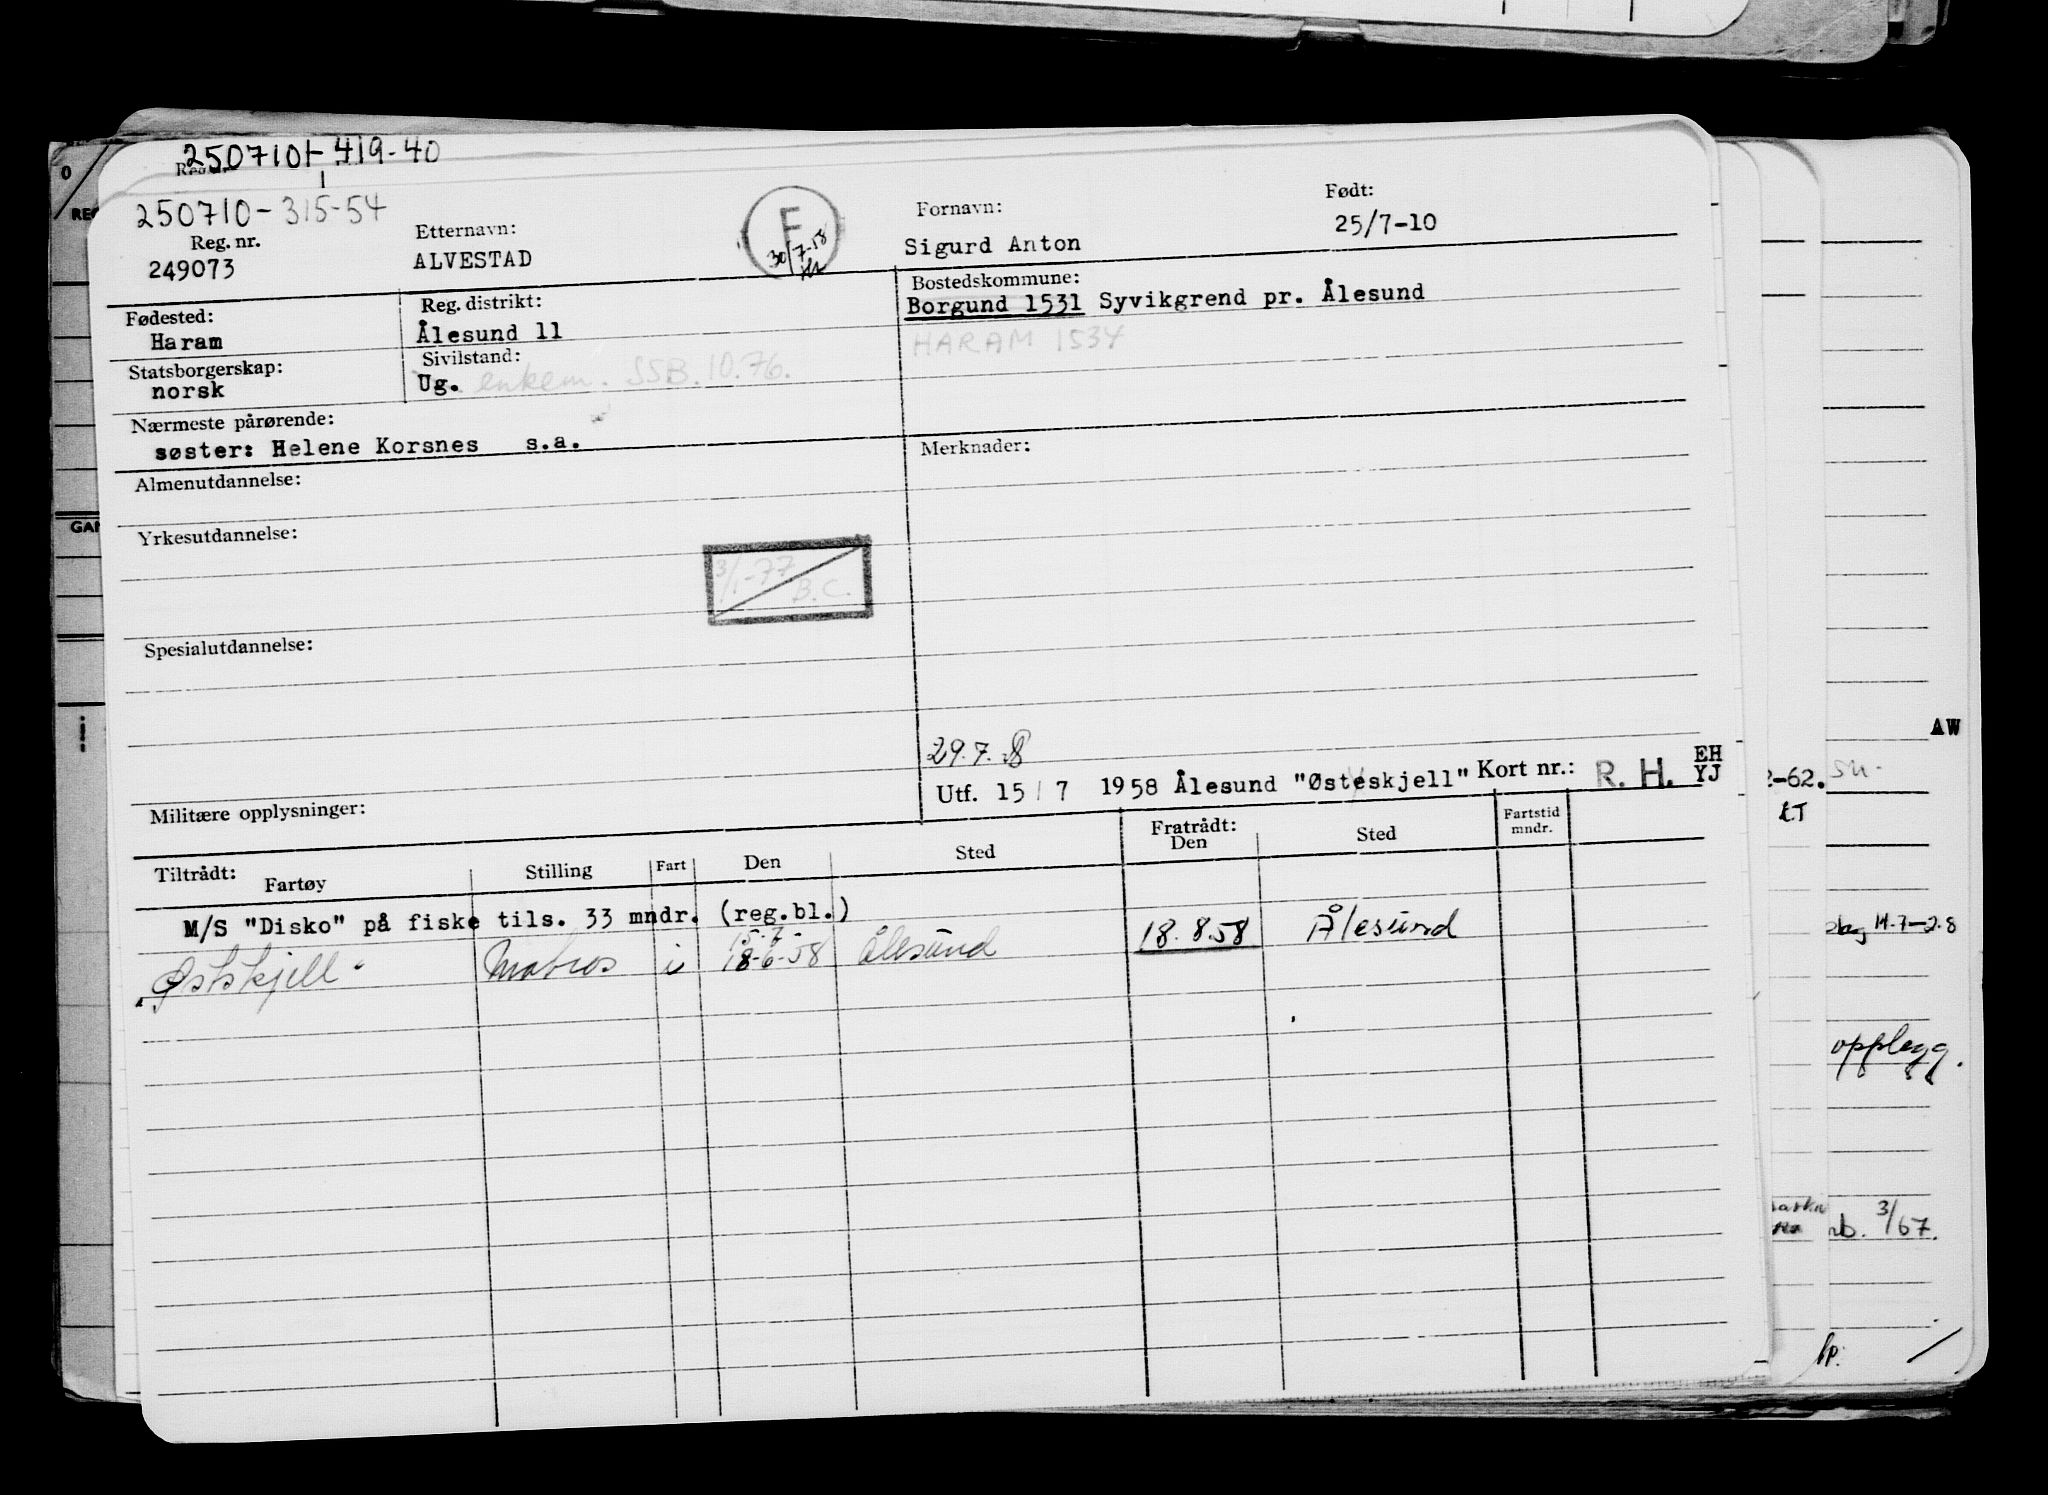 250710-419-40
Reg. nr.
250710-315-54
Reg. nr.
249073
Etternavn:
ALVESTAD
F
30/7-58
Fornavn:
Sigurd Anton
Født:
25/7-10
Fødested:
Haram
Reg. distrikt:
Ålesund 11
Bostedskommune:
Borgund 1531 Syvikgrend pr. Ålesund
HARAM 1534
Statsborgerskap:
norsk
Sivilstand:
Ug. enkem. SSB. 10.76.
Nærmeste pårørende:
søster: Helene Korsnes s.a.
Merknader:
Almenutdannelse:
Yrkesutdannelse:
3/1-77
B.C.
Spesialutdannelse:
29.7.
Utf. 15/7 1958 Ålesund "Østeskjell" Kort nr.: R. H. EH
YJ
Militære opplysninger:
Tiltrådt:
Fartøy Stilling Fart Den Sted
Fratrådt:
Den Sted
Fartstid
mndr.
M/S "Disko" på fiske tils. 33 mndr. (reg.bl.)
15-7-
Østskjell Matros i 18-6-58 Ålesund 18.8.58 Ålesund
0
REG
GAN
AW
2-62.
LT
14.7-2.8
opplegg.
nb. 3/67.